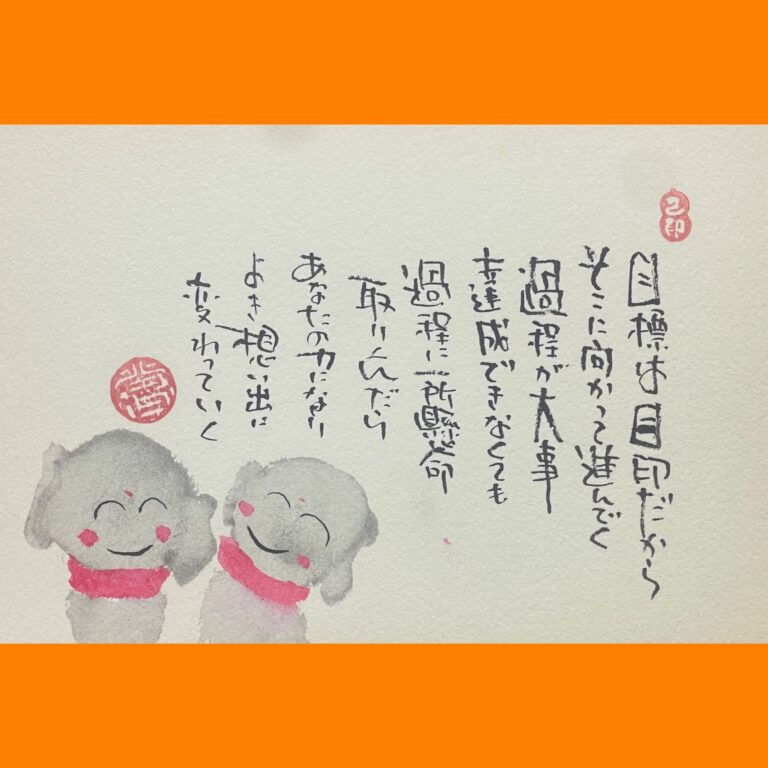 目標は目印だから
そこに向かって進んでく
過程が大事
達成できなくても
過程に一所懸命
取りくんだら
あなたの力になり
よき想い出に
変わっていく